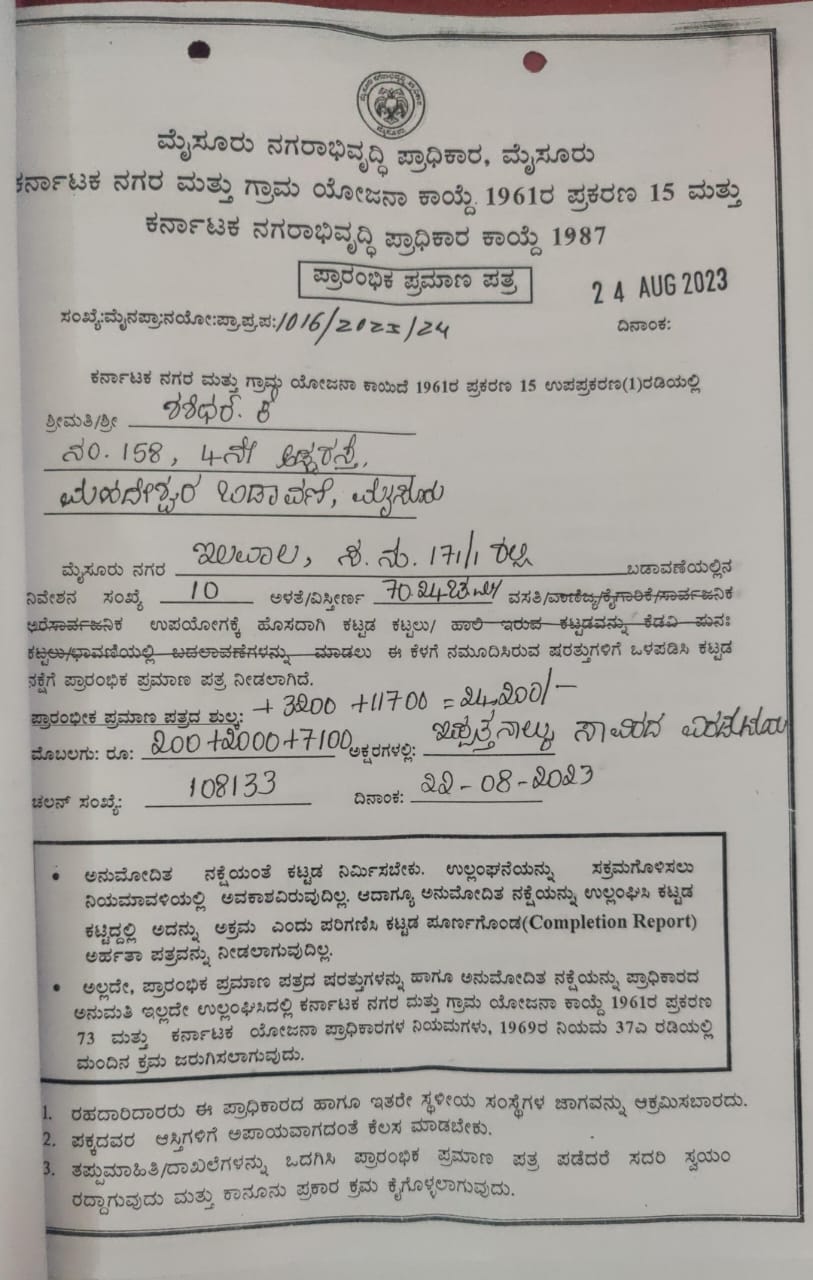 ಮೈಸೂರು ನಗರಾಭಿವೃದ್ಧಿ ಪ್ರಾಧಿಕಾರ, ಮೈಸೂರು
ಕರ್ನಾಟಕ ನಗರ ಮತ್ತು ಗ್ರಾಮ ಯೋಜನಾ ಕಾಯ್ದೆ 1961ರ ಪ್ರಕರಣ 15 ಮತ್ತು
ಕರ್ನಾಟಕ ನಗರಾಭಿವೃದ್ಧಿ ಪ್ರಾಧಿಕಾರ ಕಾಯ್ದೆ 1987
ಪ್ರಾರಂಭಿಕ ಪ್ರಮಾಣ ಪತ್ರ
24 AUG 2023
ಸಂಖ್ಯೆ:ಮೈನಪ್ರಾ:ನಯೋ:ಪ್ರಾ.ಪ್ರ.ಪ:/016/2023/24 ದಿನಾಂಕ:
ಕರ್ನಾಟಕ ನಗರ ಮತ್ತು ಗ್ರಾಮ ಯೋಜನಾ ಕಾಯಿದೆ 1961ರ ಪ್ರಕರಣ 15 ಉಪಪ್ರಕರಣ(1)ರಡಿಯಲ್ಲಿ
ಶ್ರೀಮತಿ/ಶ್ರೀ ಶಶಿಧರ್.
ನಂ. 158, 4ನೇ ಅಡ್ಡರಸ್ತೆ,
ಮಹದೇಶ್ವರ ಬಡಾವಣೆ, ಮೈಸೂರು
ಮೈಸೂರು ನಗರ ಇಲವಾಲ, ಸ.ನಂ. 171/1 ರಲ್ಲಿ ಬಡಾವಣೆಯಲ್ಲಿನ
ನಿವೇಶನ ಸಂಖ್ಯೆ 10 ಅಳತೆ/ವಿಸ್ತೀರ್ಣ 70.24ಚಮೀ ವಸತಿ/ವಾಣಿಜ್ಯ/ಕೈಗಾರಿಕೆ/ಸಾರ್ವಜನಿಕ
ಅರೆಸಾರ್ವಜನಿಕ ಉಪಯೋಗಕ್ಕೆ ಹೊಸದಾಗಿ ಕಟ್ಟಡ ಕಟ್ಟಲು/ ಹಾಲಿ ಇರುವ ಕಟ್ಟಡವನ್ನು ಕೆಡವಿ ಪುನಃ
ಕಟ್ಟಲು/ಛಾವಣಿಯಲ್ಲಿ ಬದಲಾವಣೆಗಳನ್ನು ಮಾಡಲು ಈ ಕೆಳಗೆ ನಮೂದಿಸಿರುವ ಷರತ್ತುಗಳಿಗೆ ಒಳಪಡಿಸಿ ಕಟ್ಟಡ
ನಕ್ಷೆಗೆ ಪ್ರಾರಂಭಿಕ ಪ್ರಮಾಣ ಪತ್ರ ನೀಡಲಾಗಿದೆ.
ಪ್ರಾರಂಭೀಕ ಪ್ರಮಾಣ ಪತ್ರದ ಶುಲ್ಕ: + 3200 +11700 = 24,200/-
ಮೊಬಲಗು: ರೂ: 200+2000+7100 ಅಕ್ಷರಗಳಲ್ಲಿ: ಇಪ್ಪತ್ತನಾಲ್ಕು ಸಾವಿರದ ಎರಡುನೂರು
ಚಲನ್ ಸಂಖ್ಯೆ: 108133 ದಿನಾಂಕ: 22-08-2023
• ಅನುಮೋದಿತ ನಕ್ಷೆಯಂತೆ ಕಟ್ಟಡ ನಿರ್ಮಿಸಬೇಕು. ಉಲ್ಲಂಘನೆಯನ್ನು ಸಕ್ರಮಗೊಳಿಸಲು
ನಿಯಮಾವಳಿಯಲ್ಲಿ ಅವಕಾಶವಿರುವುದಿಲ್ಲ. ಆದಾಗ್ಯೂ ಅನುಮೋದಿತ ನಕ್ಷೆಯನ್ನು ಉಲ್ಲಂಘಿಸಿ ಕಟ್ಟಡ
ಕಟ್ಟಿದ್ದಲ್ಲಿ ಅದನ್ನು ಅಕ್ರಮ ಎಂದು ಪರಿಗಣಿಸಿ ಕಟ್ಟಡ ಪೂರ್ಣಗೊಂಡ(Completion Report)
ಅರ್ಹತಾ ಪತ್ರವನ್ನು ನೀಡಲಾಗುವುದಿಲ್ಲ.
• ಅಲ್ಲದೇ, ಪ್ರಾರಂಭಿಕ ಪ್ರಮಾಣ ಪತ್ರದ ಷರತ್ತುಗಳನ್ನು ಹಾಗೂ ಅನುಮೋದಿತ ನಕ್ಷೆಯನ್ನು ಪ್ರಾಧಿಕಾರದ
ಅನುಮತಿ ಇಲ್ಲದೇ ಉಲ್ಲಂಘಿಸಿದಲ್ಲಿ ಕರ್ನಾಟಕ ನಗರ ಮತ್ತು ಗ್ರಾಮ ಯೋಜನಾ ಕಾಯ್ದೆ 1961ರ ಪ್ರಕರಣ
73 ಮತ್ತು ಕರ್ನಾಟಕ ಯೋಜನಾ ಪ್ರಾಧಿಕಾರಗಳ ನಿಯಮಗಳು, 1969ರ ನಿಯಮ 37ಎ ರಡಿಯಲ್ಲಿ
ಮುಂದಿನ ಕ್ರಮ ಜರುಗಿಸಲಾಗುವುದು.
1. ರಹದಾರಿದಾರರು ಈ ಪ್ರಾಧಿಕಾರದ ಹಾಗೂ ಇತರೇ ಸ್ಥಳೀಯ ಸಂಸ್ಥೆಗಳ ಜಾಗವನ್ನು ಆಕ್ರಮಿಸಬಾರದು.
2. ಪಕ್ಕದವರ ಆಸ್ತಿಗಳಿಗೆ ಅಪಾಯವಾಗದಂತೆ ಕೆಲಸ ಮಾಡಬೇಕು.
3. ತಪ್ಪುಮಾಹಿತಿ/ದಾಖಲೆಗಳನ್ನು ಒದಗಿಸಿ ಪ್ರಾರಂಭಿಕ ಪ್ರಮಾಣ ಪತ್ರ ಪಡೆದರೆ ಸದರಿ ಸ್ವಯಂ
ರದ್ದಾಗುವುದು ಮತ್ತು ಕಾನೂನು ಪ್ರಕಾರ ಕ್ರಮ ಕೈಗೊಳ್ಳಲಾಗುವುದು.